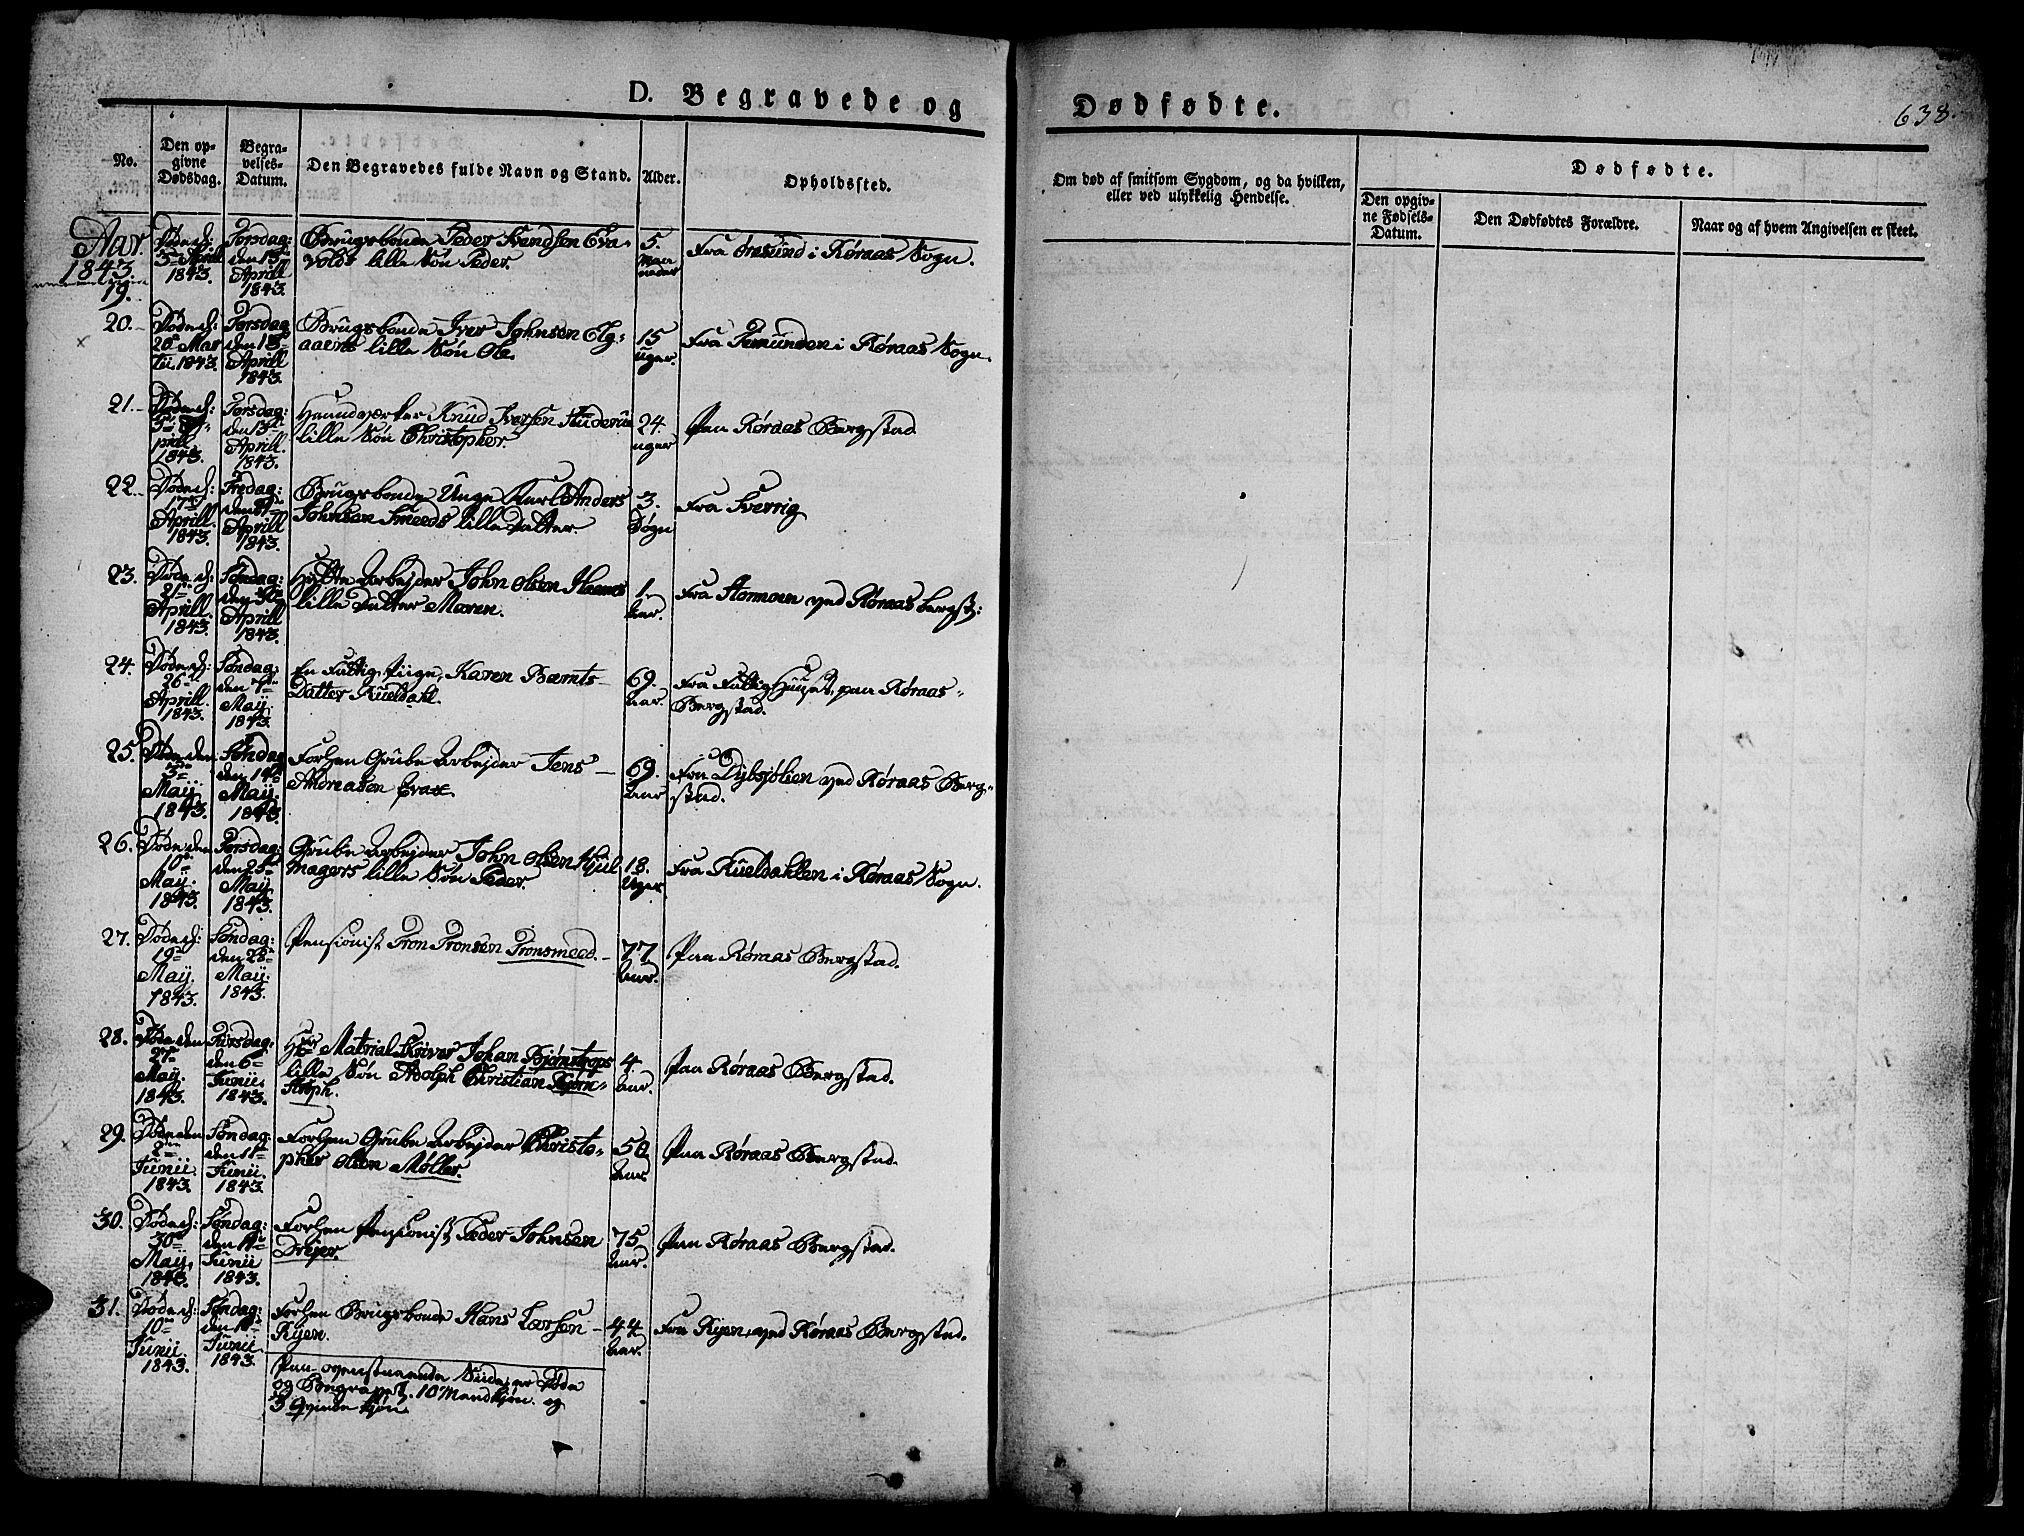 D. Begravede og
Dødfødte.
638.
No.
Den op-
givne
Dødsdag.
Begra-
velses-
Datum.
Den Begravedes fulde Navn og Stand.
Alder.
Opholdssted.
Om død af smitsom Sygdom, og da hvilken,
eller ved ulykkelig Hendelse.
Dødfødte.
Den opgiv-
ne Fødsels-
Datum.
Den Dødfødtes Forældre.
Naar og af hvem Angivelsen er skeet.
Aar
1843.
19.
Døde d:
5te Aprill
1843.
Torsdag:
den 13de
Aprill
1843.
Brugsbonde Peder Svendsen Eva-
volds lille Søn Peder.
5.
Maa
neder
Fra Øresund i Røraas Sogn.
20.
Døde d:
20de Mar
tii 1843.
Torsdag
den 13de
Aprill
1843.
Brugsbonde Iver Johnsen Elg-
aaens lille Søn Ole.
15
uger.
Fra Femunden i Røraas Sogn.
21.
Døde d:
5te A-
prill
1843.
Torsdag:
den 13de
Aprill.
1843.
Haandværker Knud Iversen
lille Søn Christopher.
24.
uger
Paa Røraas Bergstad.
22.
Døde d:
17de
Aprill.
1843.
Fredag:
den
Aprill
1843.
Brugsbonde Unge Karl Anders
Johnsen Smeeds lille Datter.
3.
Døgn
Fra Sverrig
23.
Døde d:
21de
Aprill
1843.
Søndag:
den 30de
Aprill
1843.
Hytte Arbejder John Olsen
lille Datter Maren.
1.
Aar.
Fra Stormoen ved Røraas Bergst:
24.
Døde d:
26de
Aprill.
1843.
Søndag:
den 7de
Maij.
1843.
En Fattig Piige, Karen Bernts-
Datter Kueldahl.
69.
Aar.
Fra FattigHuuset, paa Røraas-
Bergstad.
25.
Døde den
5te
Maij.
1843.
Søndag
den 14de
Maij.
1843.
Forhen Grube Arbejder Jens
Andreasen
69.
Aar
Fra Dybsjølien ved Røraas Berg-
stad.
26.
Døde den
10de
Maij.
1843.
Torsdag:
den 25de
Maij.
1843.
Grube Arbejder John Olsen Hjul
Magers lille Søn Peder.
18.
Uger
Fra Kueldahlen i Røraas Sogn.
27.
Døde d:
19de
Maij.
1843.
Søndag:
den 28de
Maij.
1843.
Pensionist Tron Tronsen Tronsmeed.
77.
Aar.
Paa Røraas Bergstad.
28.
Døde den
27de
Maij.
1843.
Tirsdag:
den 6te
Junii.
1843.
Hr Matrial Skriver Johan Bjørnstrops
lille Søn Adolph Christian Bjørn-
stroph.
4.
Aar.
Paa Røraas Bergstad.
29.
Døde den
2den
Junii
1843.
Søndag:
den 11te
Junii.
1843.
Forhen Grube Arbejder Christo-
pher Olsen Møller.
50
Aar
Paa Røraas Bergstad.
30.
Døde d:
30te
Maij,
1843.
Søndag:
den 11te
Junii
1843.
Forhen Pensionist Peder Johnsen
Drejer.
75
Aar.
Paa Røraas Bergstad.
31.
Døde d:
10de
Junii.
1843.
Søndag:
den 18de
Junii
1843.
Forhen Brugsbonde Hans Larsen
Ryen.
44
Aar.
Fra Ryen, ved Røraas Bergstad.
Paa ovenstaaende Side, er Døde
og Begravet. 10 Mandkjøn. og
3 Qvindekjøn.